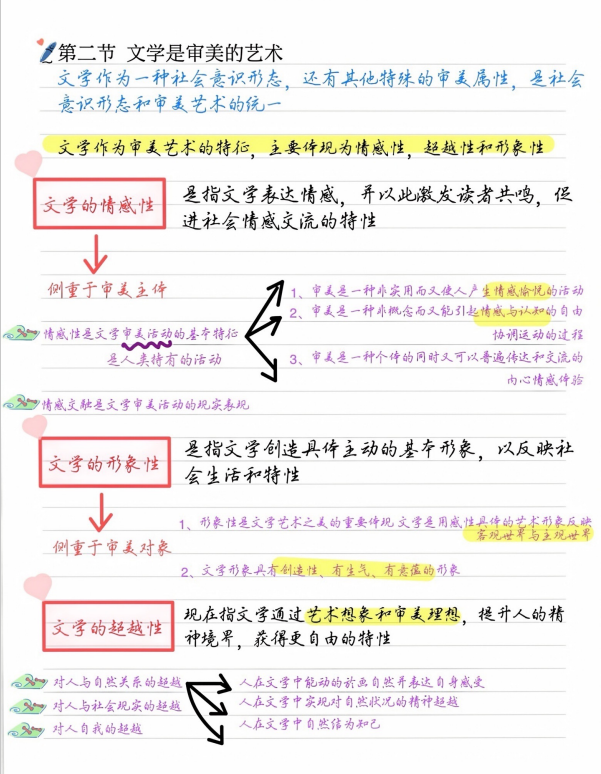 第二节 文学是审美的艺术
文学作为一种社会意识形态，还有其他特殊的审美属性，是社会
意识形态和审美艺术的统一
文学作为审美艺术的特征，主要体现为情感性，超越性和形象性
文学的情感性
是指文学表达情感，并以此激发读者共鸣，促
进社会情感交流的特性
侧重于审美主体
1、审美是一种非实用而又使人产生情感愉悦的活动
2、审美是一种非概念而又能引起情感与认知的自由
协调运动的过程
情感性是文学审美活动的基本特征
是人类特有的活动
3、审美是一种个体的同时又可以普遍传达和交流的
内心情感体验
情感交融是文学审美活动的现实表现
文学的形象性
是指文学创造具体主动的基本形象，以反映社
会生活和特性
侧重于审美对象
1、形象性是文学艺术之美的重要体现 文学是用感性具体的艺术形象反映
客观世界与主观世界
2、文学形象具有创造性、有生气、有意蕴的形象
文学的超越性
现在指文学通过艺术想象和审美理想，提升人的精
神境界，获得更自由的特性
对人与自然关系的超越
人在文学中能动的於画自然并表达自身感受
对人与社会现实的超越
人在文学中实现对自然状况的精神超越
对人自我的超越
人在文学中自然结为知己